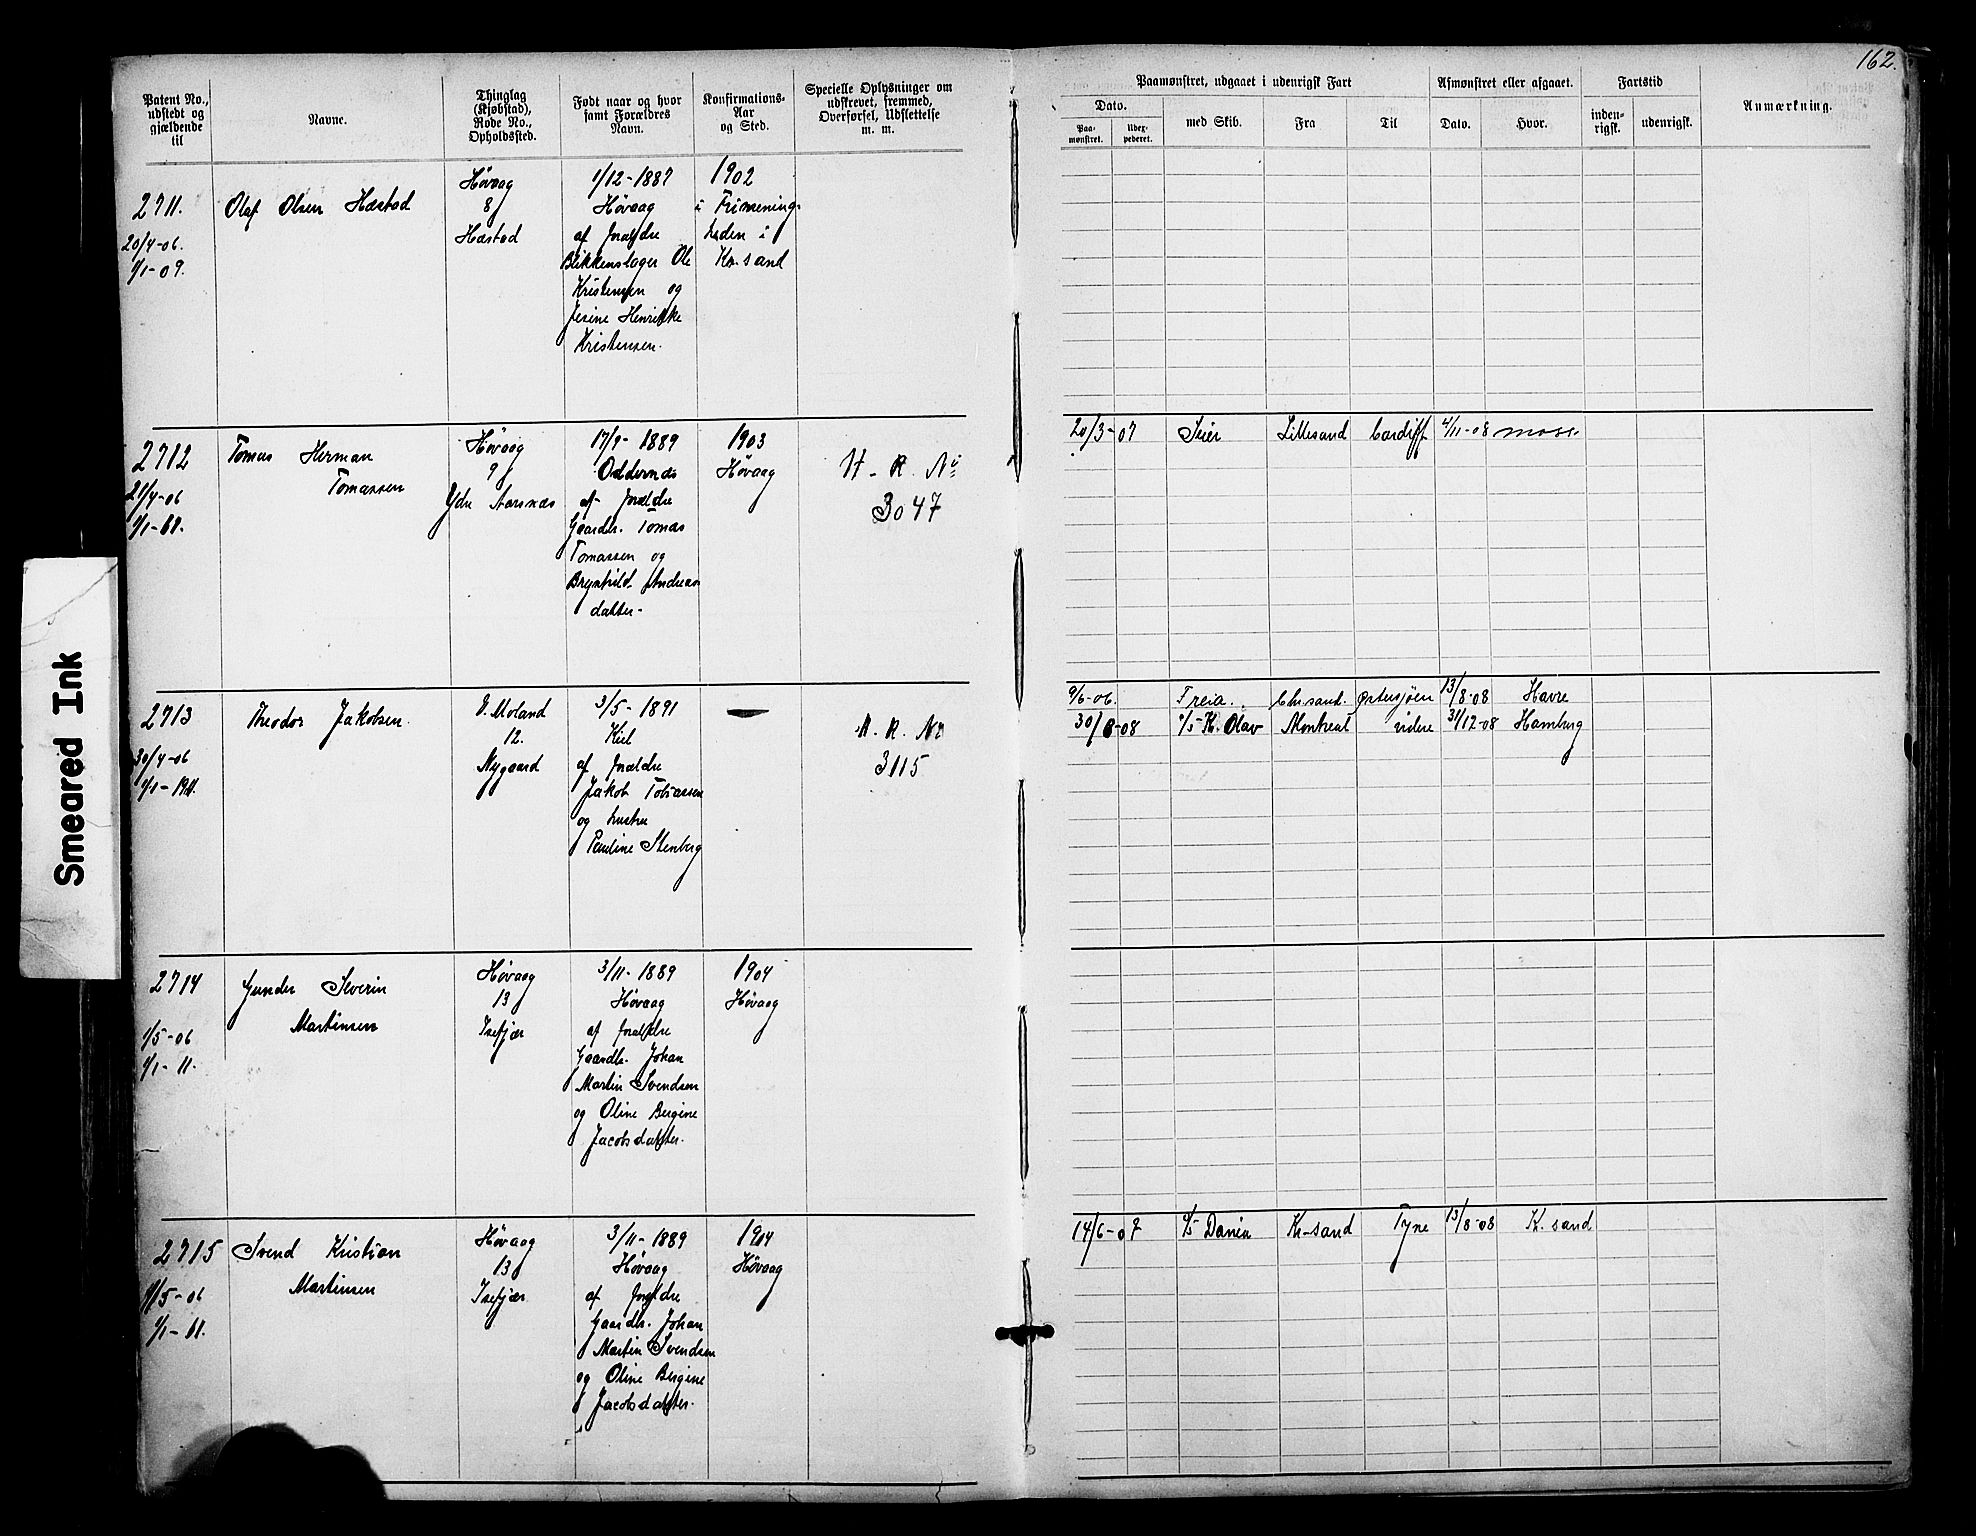 162.
Patent No., udstedt og gjældende til
Navne.
Thinglag (Kjøbstad), Rode No., Opholdssted.
Født naar og hvor samt Forældres Navn.
Konfirmations-Aar og Sted.
Specielle Oplysninger om udskrevet, fremmed, Overførsel, Udslettelse m. m.
Paamønstret, udgaaet i udenrigsk Fart
Afmønstret eller afgaaet.
Fartstid
Anmærkning.
Dato.
Paa-mønstret.
Udex-pederet.
med Skib.
Fra
Til
Dato.
Hvor.
inden-rigsk.
udenrigsk.
2711.
20/4-06.
1/1-09.
Olaf Olsen Hæstad
Høvaag
8
Hæstad
1/12-1887
Høvaag
af forældre
Blikkenslager Ole
Kristensen og
Jesine Henrikke
Kristensen.
1902
i Frimenig-
heden i
Kr.sand
2712
21/4-06
Tomas Herman
Tomassen
Høvaag
9
Ydre Aarsnæs
17/9-1889
Oddernæs
af forældre
Gaardbr. Tomas
Tomassen og
Brynhild Andreas
datter-
1903
Høvaag
H. R. No
3047
20/3-07 Seier Lillesand Cardiff 4/11-08 Moss.
2713
30/4-06
1/1-1911.
Theodor Jakobsen.
V. Moland
12.
Nygaard
3/5-1891
Kiel
af forældre
Jakob Tobiassen
og hustru
Pauline Stenberg
H. R. No
3115
9/6-06. Freia. Chr.sand. Østersjøen 13/8-08 Havre
30/8-08 S/S K. Olav Montreal videre 31/12-08 Hamburg
2714
1/5-06
1/1-11.
Gunder Severin
Martinsen
Høvaag
13
Isefjær
3/11-1889
Høvaag
af forældre
Gaardbr. Johan
Martin Svendsen
og Oline Bergine
Jacobsdatter.
1904
Høvaag
2715
1/5-06
1/1-11.
Svend Kristian
Martinsen
Høvaag
13
Isefjær
3/11-1889
Høvaag
af forældre
Gaardbr. Johan
Martin Svendsen
og Oline Bergine
Jacobsdatter.
1904
Høvaag
14/6-07 S/S Dania Kr-sand Tyne 13/8-08 K. sand
Smeared Ink